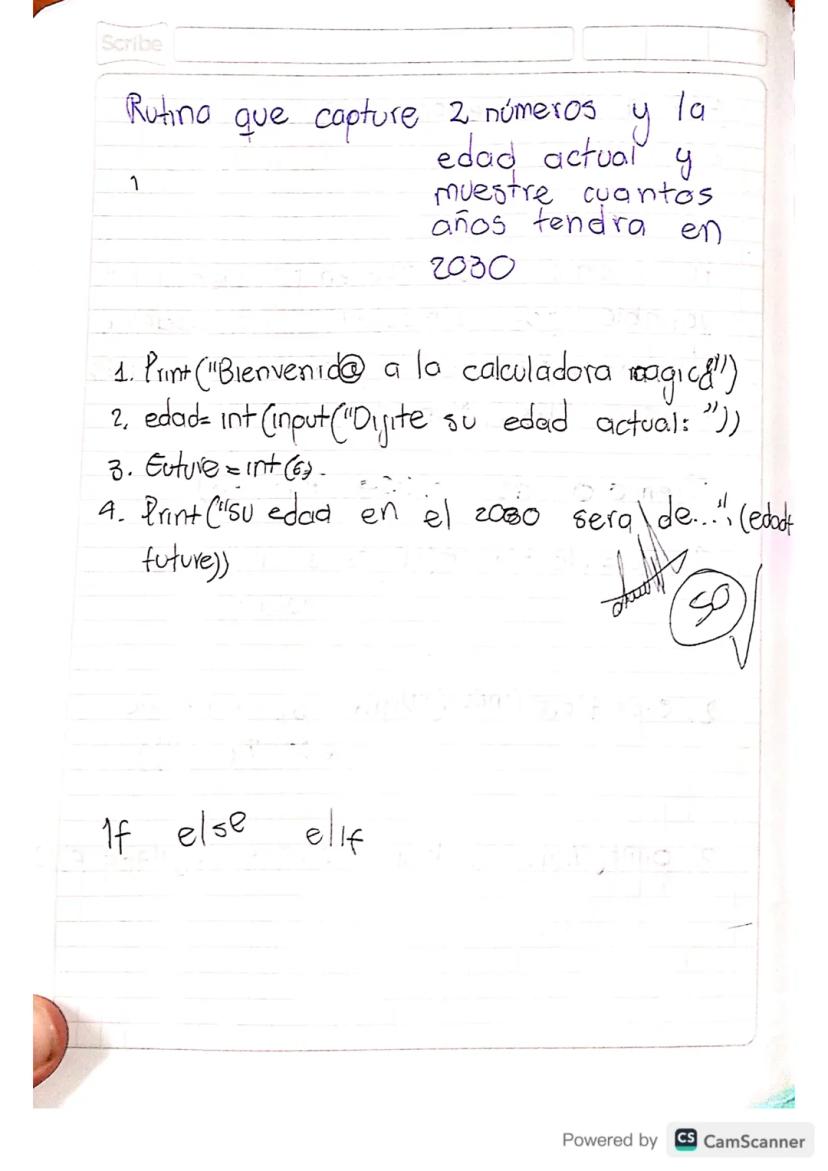 Scribe
Rutina que capture 2 números y la
edad actual y
1
muestre cuantos
años tendra en
2030
1. Print("Bienvenid@ a la calculadora magic@")
2. edad= int(input("Digite su edad actual: "))
3. Future = int(6).
4. Print("su edad en el 2030 sera de...", (edad+
future))
50
If else elif
Powered by CS CamScanner